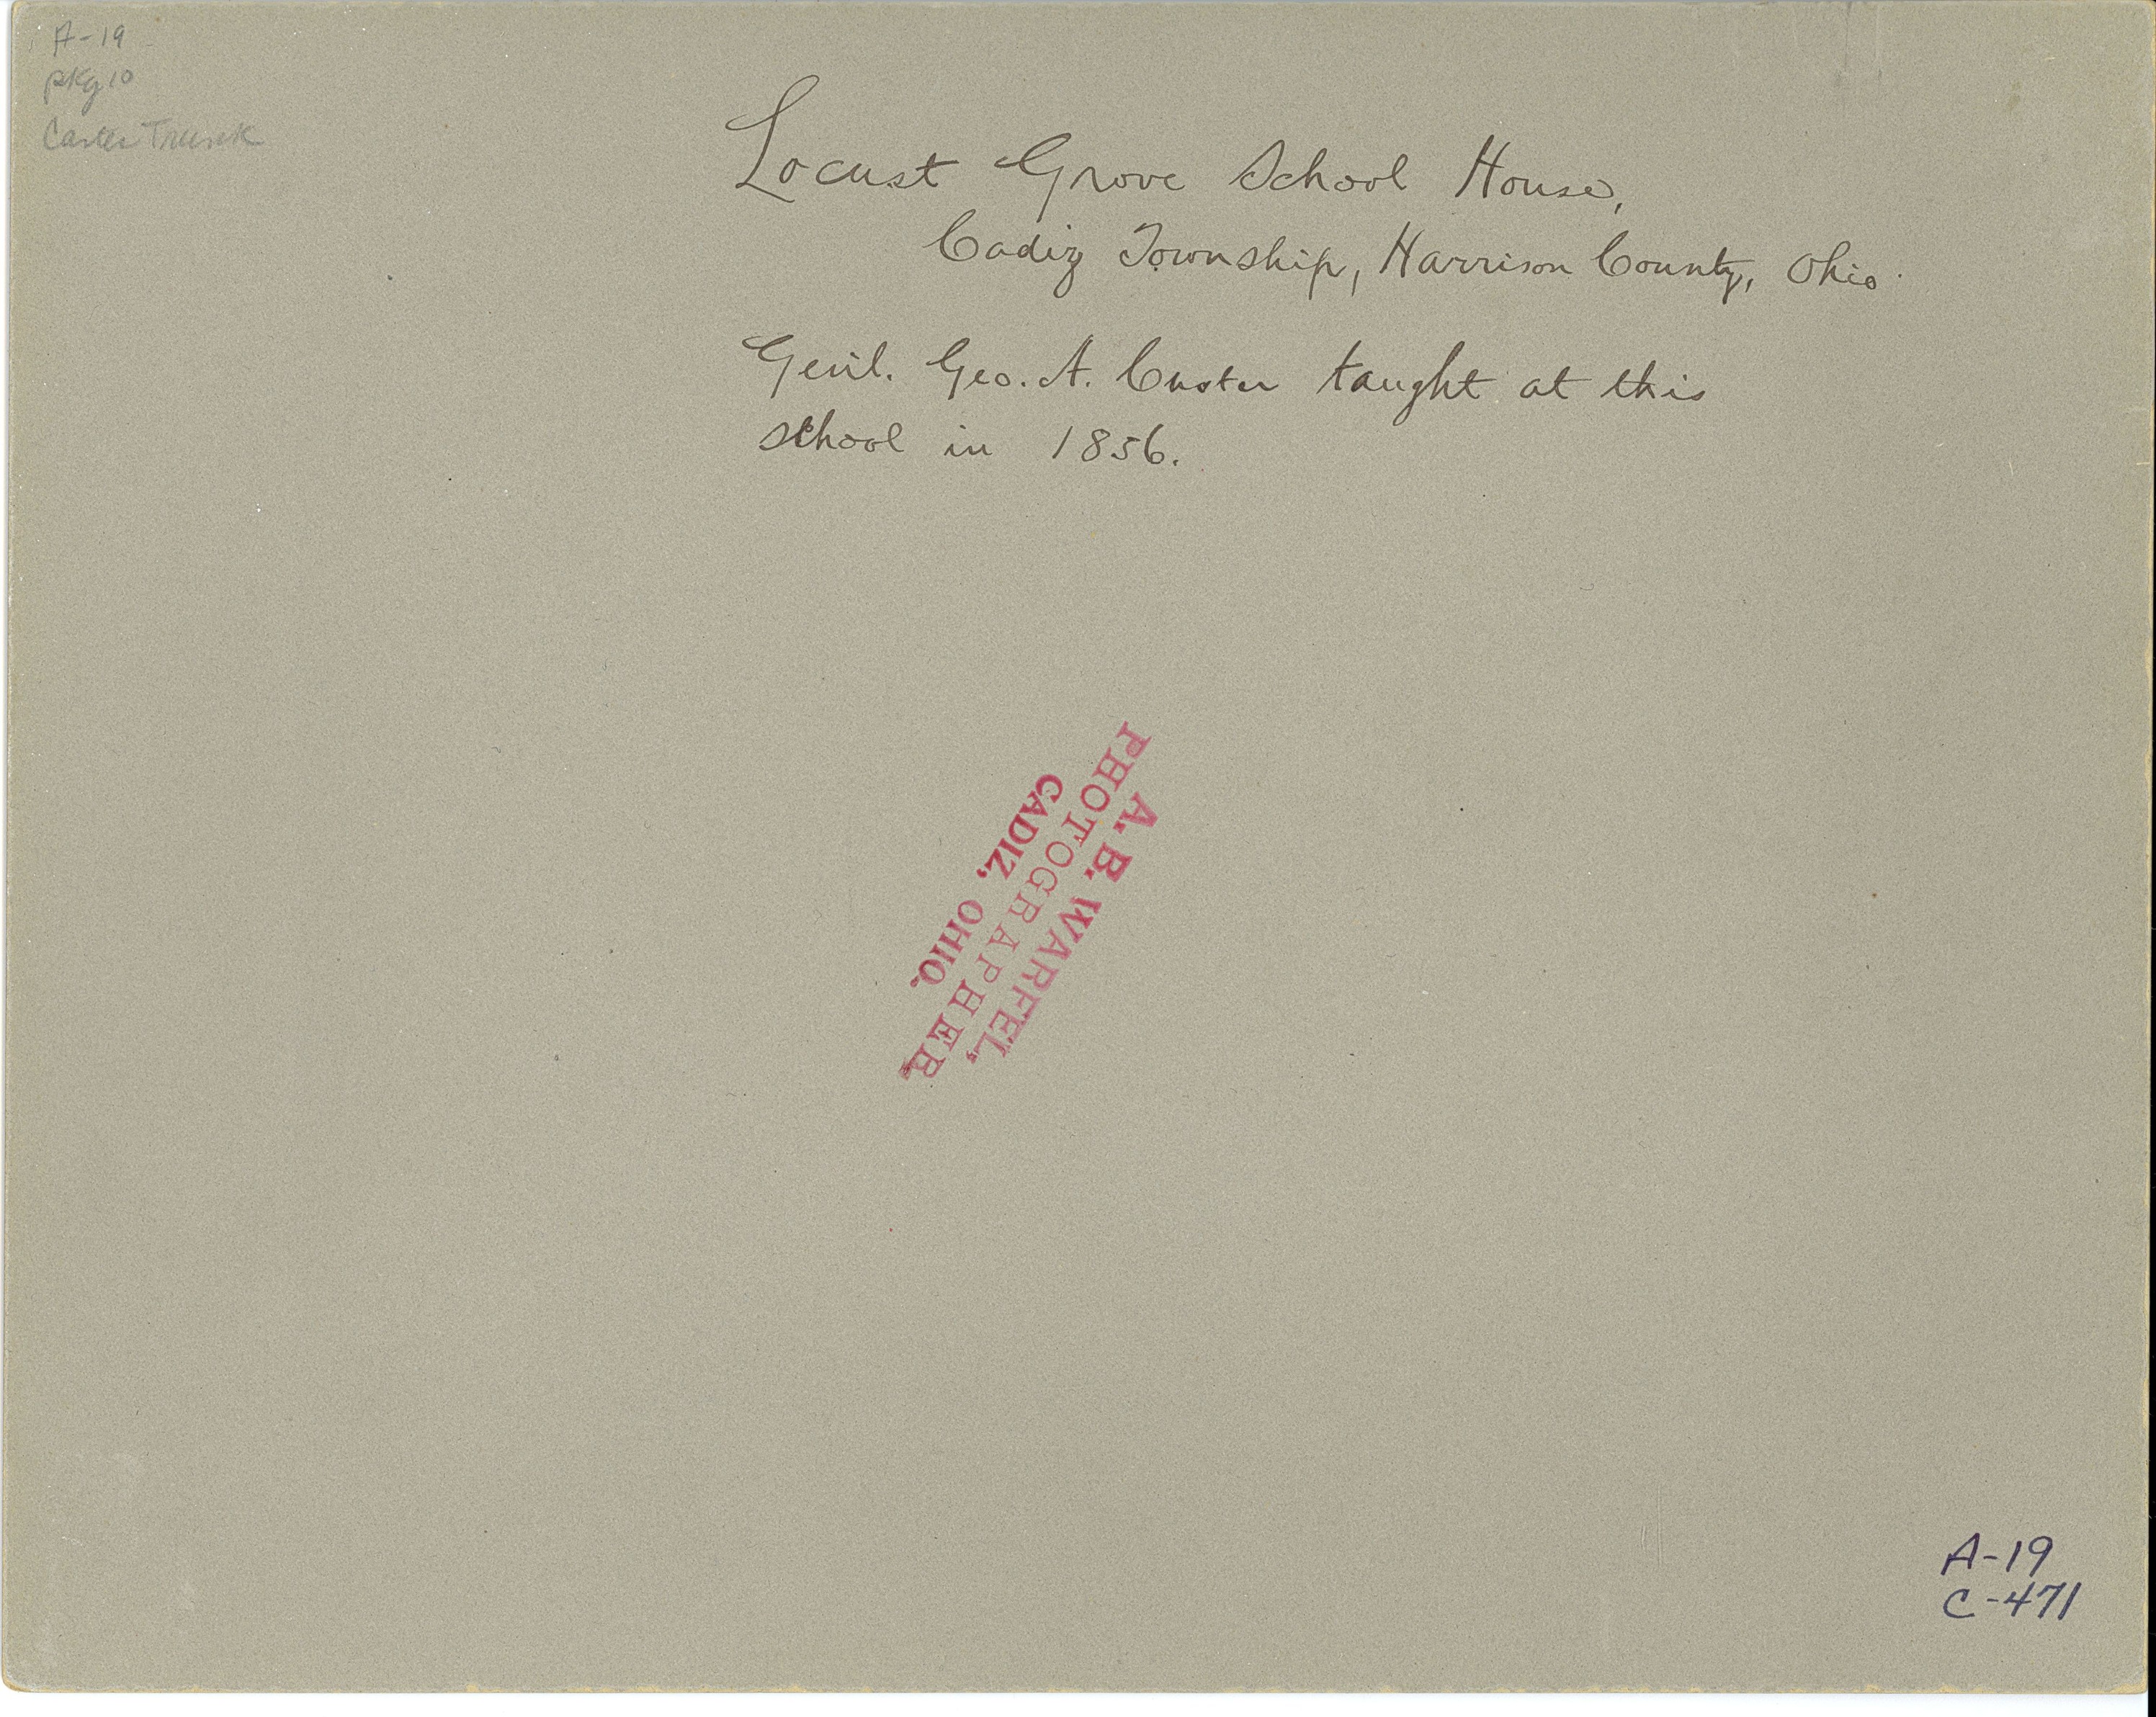 A-19
pkg 10
Trunk
Locust Grove School House,
Cadiz Township, Harrison County, Ohio.
Genl. Geo. A. Custer taught at this
school in 1856.
A. B. WARFEL,
PHOTOGRAPHER
CADIZ, OHIO.
A-19
C-471